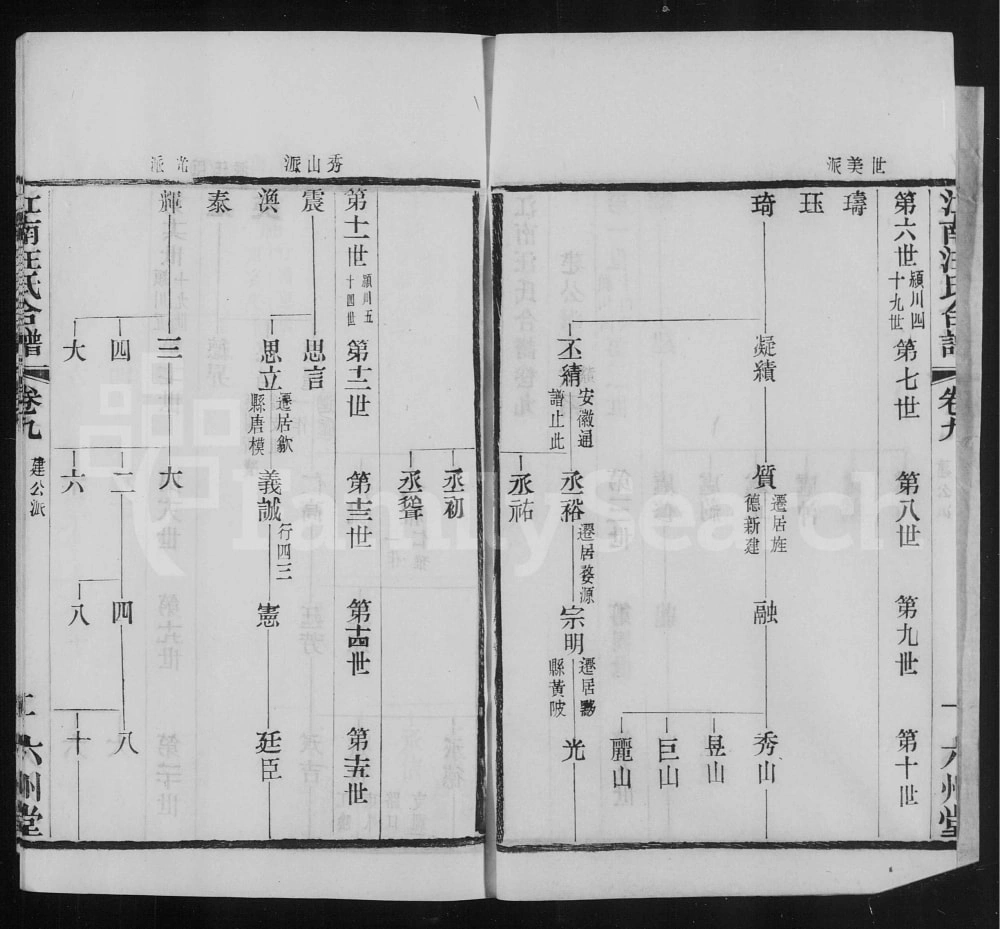 世美派
江南汪氏合譜
卷九
建公派
一
六州堂
第六世
潁川四十九世
第七世
第八世
第九世
第十世
璹
珏
琦
凝績
質
遷居旌德新建
融
秀山
昱山
巨山
麗山
丕績
安徽通譜止此
丞裕
遷居婺源
宗明
遷居黟縣黃陂
光
丞祐
秀山派
丞初
丞聳
第十一世
潁川五十四世
第十二世
第十三世
第十四世
第十五世
震
思言
渙
思立
遷居歙縣唐模
義誠
行四三
憲
廷臣
泰
光派
輝
三
大
四
二
四
八
大
六
八
十
江南汪氏合譜
卷九
建公派
二
六州堂
FamilySearch